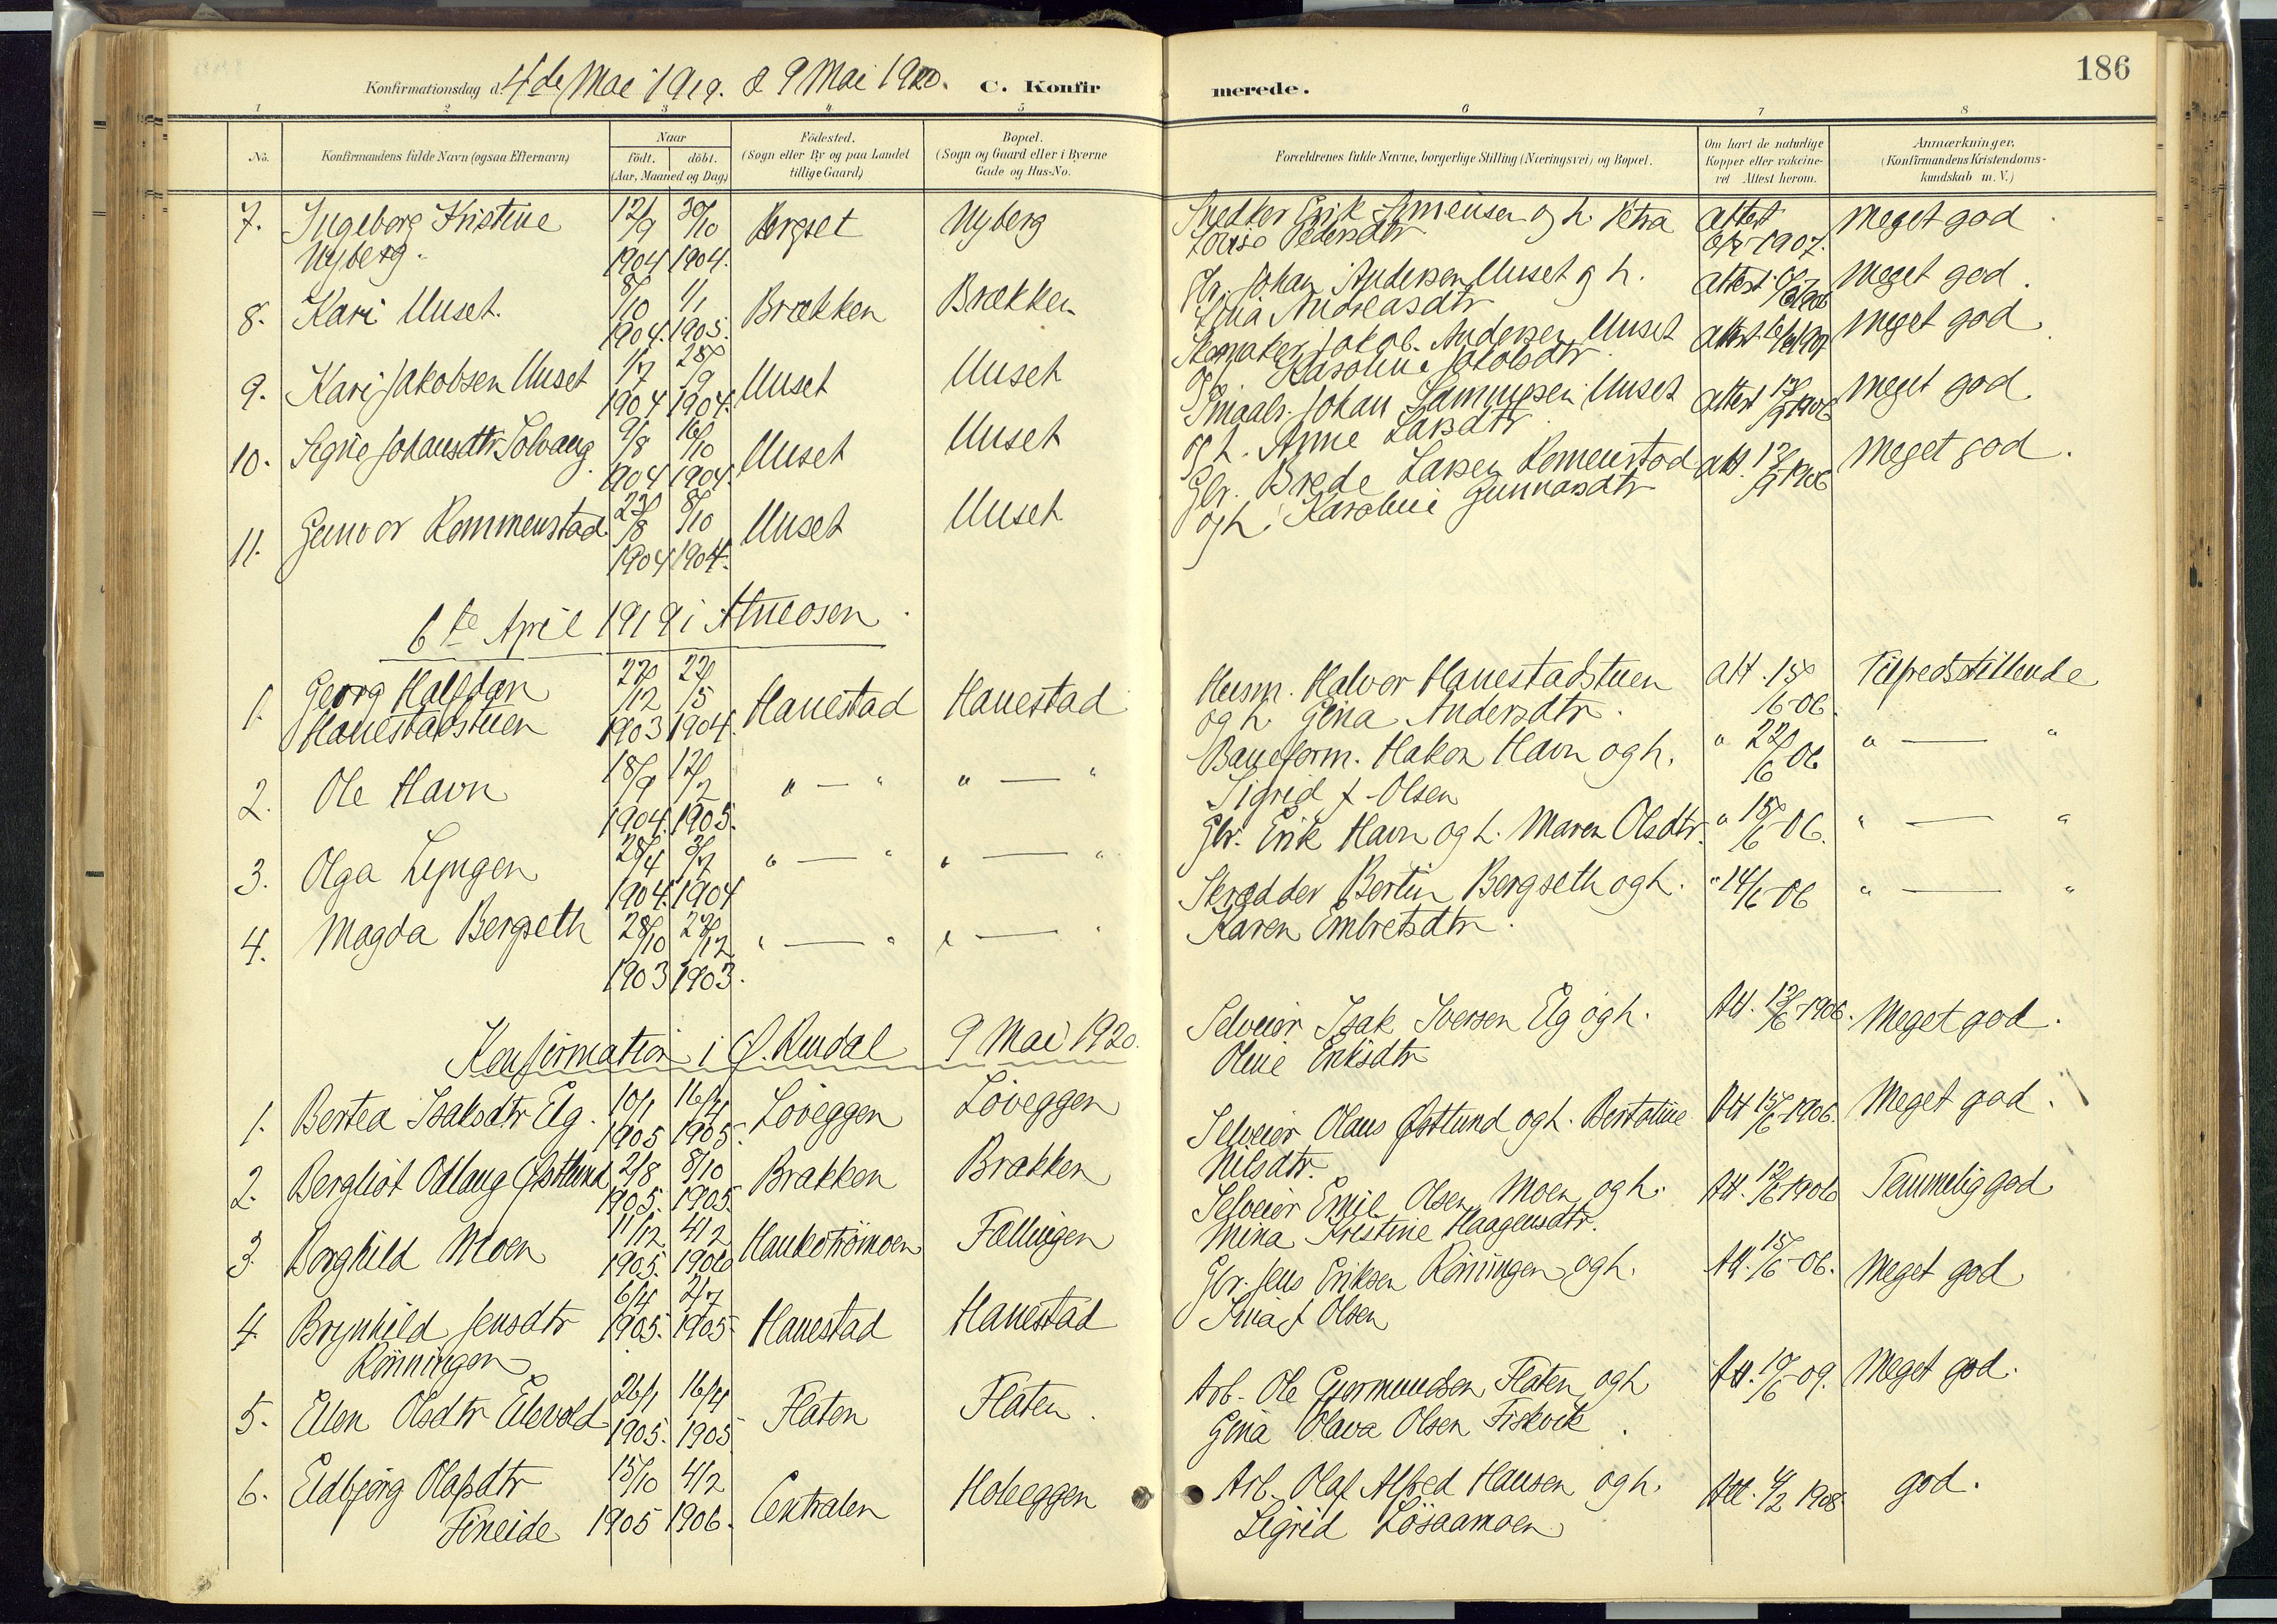 186
Konfirmationsdag d. 4de Mai 1919. & 9 Mai 1920. C. Konfirmerede.
1 2 3 4 5 6 7 8
No. Konfirmandens fulde Navn (ogsaa Efternavn) Naar födt. döbt. (Aar, Maaned og Dag) Födested. (Sogn eller By og paa Landet tillige Gaard) Bopæl. (Sogn og Gaard eller i Byerne Gade og Hus-No. Forældrenes fulde Navne, borgerlige Stilling (Næringsvei) og Bopæl. Om havt de naturlige Kopper eller vakcineret Attest herom. Anmærkninger. (Konfirmandens Kristendomskundskab m. V.)
7. Ingeborg Kristine 12/9 30/10 Bergset Nyberg Snedker Erik Simensen og h. Petra Attest Meget god
Nyberg. 1904 1904. Louise Pedersdtr 1907.
8. Kari Uuset. 8/10 1/1 Brækken Brækken Gbr. Johan Andersen Uuset og h. Attest Meget god.
1904. 1905. Andreasdtr
9. Kari Jakobsen Uuset 1/7 28/9 Uuset Uuset Skomaker Jakob Andersen Uuset Attest Meget god.
1904 1904. og h. Karoline Jakobsdtr.
10. Signe Johansdtr Solvang 9/8 16/10 Uuset Uuset Smaabr. Johan Uuset Attest 12/9 1906 Meget god.
1904 1904. og h. Anne Larsdtr.
11. Gunvor Rommenstad 23/8 8/10 Uuset Uuset Gbr. Brede Larsen Romenstad Att. 12/9 1906 Meget god.
1904 1904. og h. Karoline Gunnarsdtr
6te April 1919 i Atneosen
1. Georg Halfdan 27/12 22/5 Hanestad Hanestad Husm. Halvor Hanestadstuen Att. 15/6-06. Tilfredsstillende
Hanestadstuen 1903 1904. og h. Gina Andersdtr.
2. Ole Havn 18/9 12/2 " — " " — " Baneform. Hakon Havn og h. " 22/6 06 " — "
1904. 1905. Sigrid f. Olsen
3. Olga Lyngen 28/4 3/7 " — " " — " Gbr. Erik Havn og h. Maren Olsdtr. " 15/6-06. " — "
1904. 1904
4. Magda Bergseth 28/10 29/12 " — " " — " Skrædder Bertin Bergseth og h. " 14/6-06 " — "
1903 1903. Karen Embretsdtr.
Konfirmation i Ø. Rendal 9 Mai 1920.
1. Bertea Isaksdtr Elg. 10/1 16/4 Löveggen Löveggen Selveier Isak Iversen Elg og h. Att. 12/6-1906. Meget god.
1905 1905. Oline Eriksdtr
2. Bergliot Odlaug Østlund 2/8 8/10 Brækken Brækken Selveier Olaus Østlund og h. Bertatine Att 15/6-1906. Meget god.
1905. 1905. Nilsdtr.
3. Borghild Moen 11/12 4/2 Haukströmoen Fællingen Selveier Emil Olsen Moen og h. Att. 12/6 1906 Temmelig god
1905. 1906 Mina Kristine Haagensdtr.
4. Brynhild Jensdtr 6/4 2/7 Hanestad Hanestad Gbr. Jens Eriksen Rönningen og h. Att. 15/6-06. Meget god
Rönningen 1905. 1905. f. Olsen
5. Ellen Olsdtr Elvevold 26/1 16/4 Flaten Flaten. Arb. Ole Guermundsen Flaten og h Att. 10/6-09. Meget god.
1905. 1905 Gina Olava Olsen Fiskvik.
6. Eldbjörg Olafsdtr 15/10 4/2 Centralen Holveggen Arb. Olaf Alfred Hansen og h. Att. 4/2 1908. god.
Fineide 1905 1906. Sigrid Lösaamoen